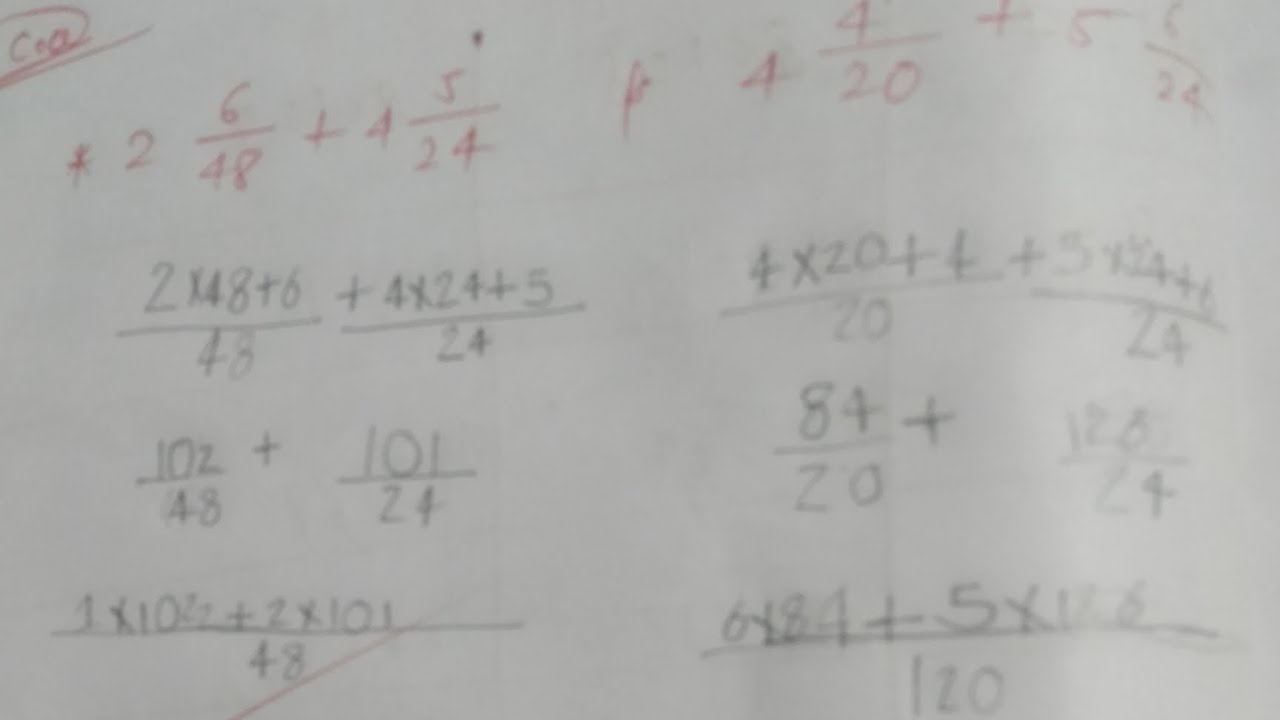 C.a
* 2 6/48 + 4 5/24
4 4/20 + 5 6/24
2×48+6/48 + 4×24+5/24
102/48 + 101/24
1×102+2×101/48
4×20+4/20 + 5×24+6/24
84/20 + 126/24
6×84+5×126/120